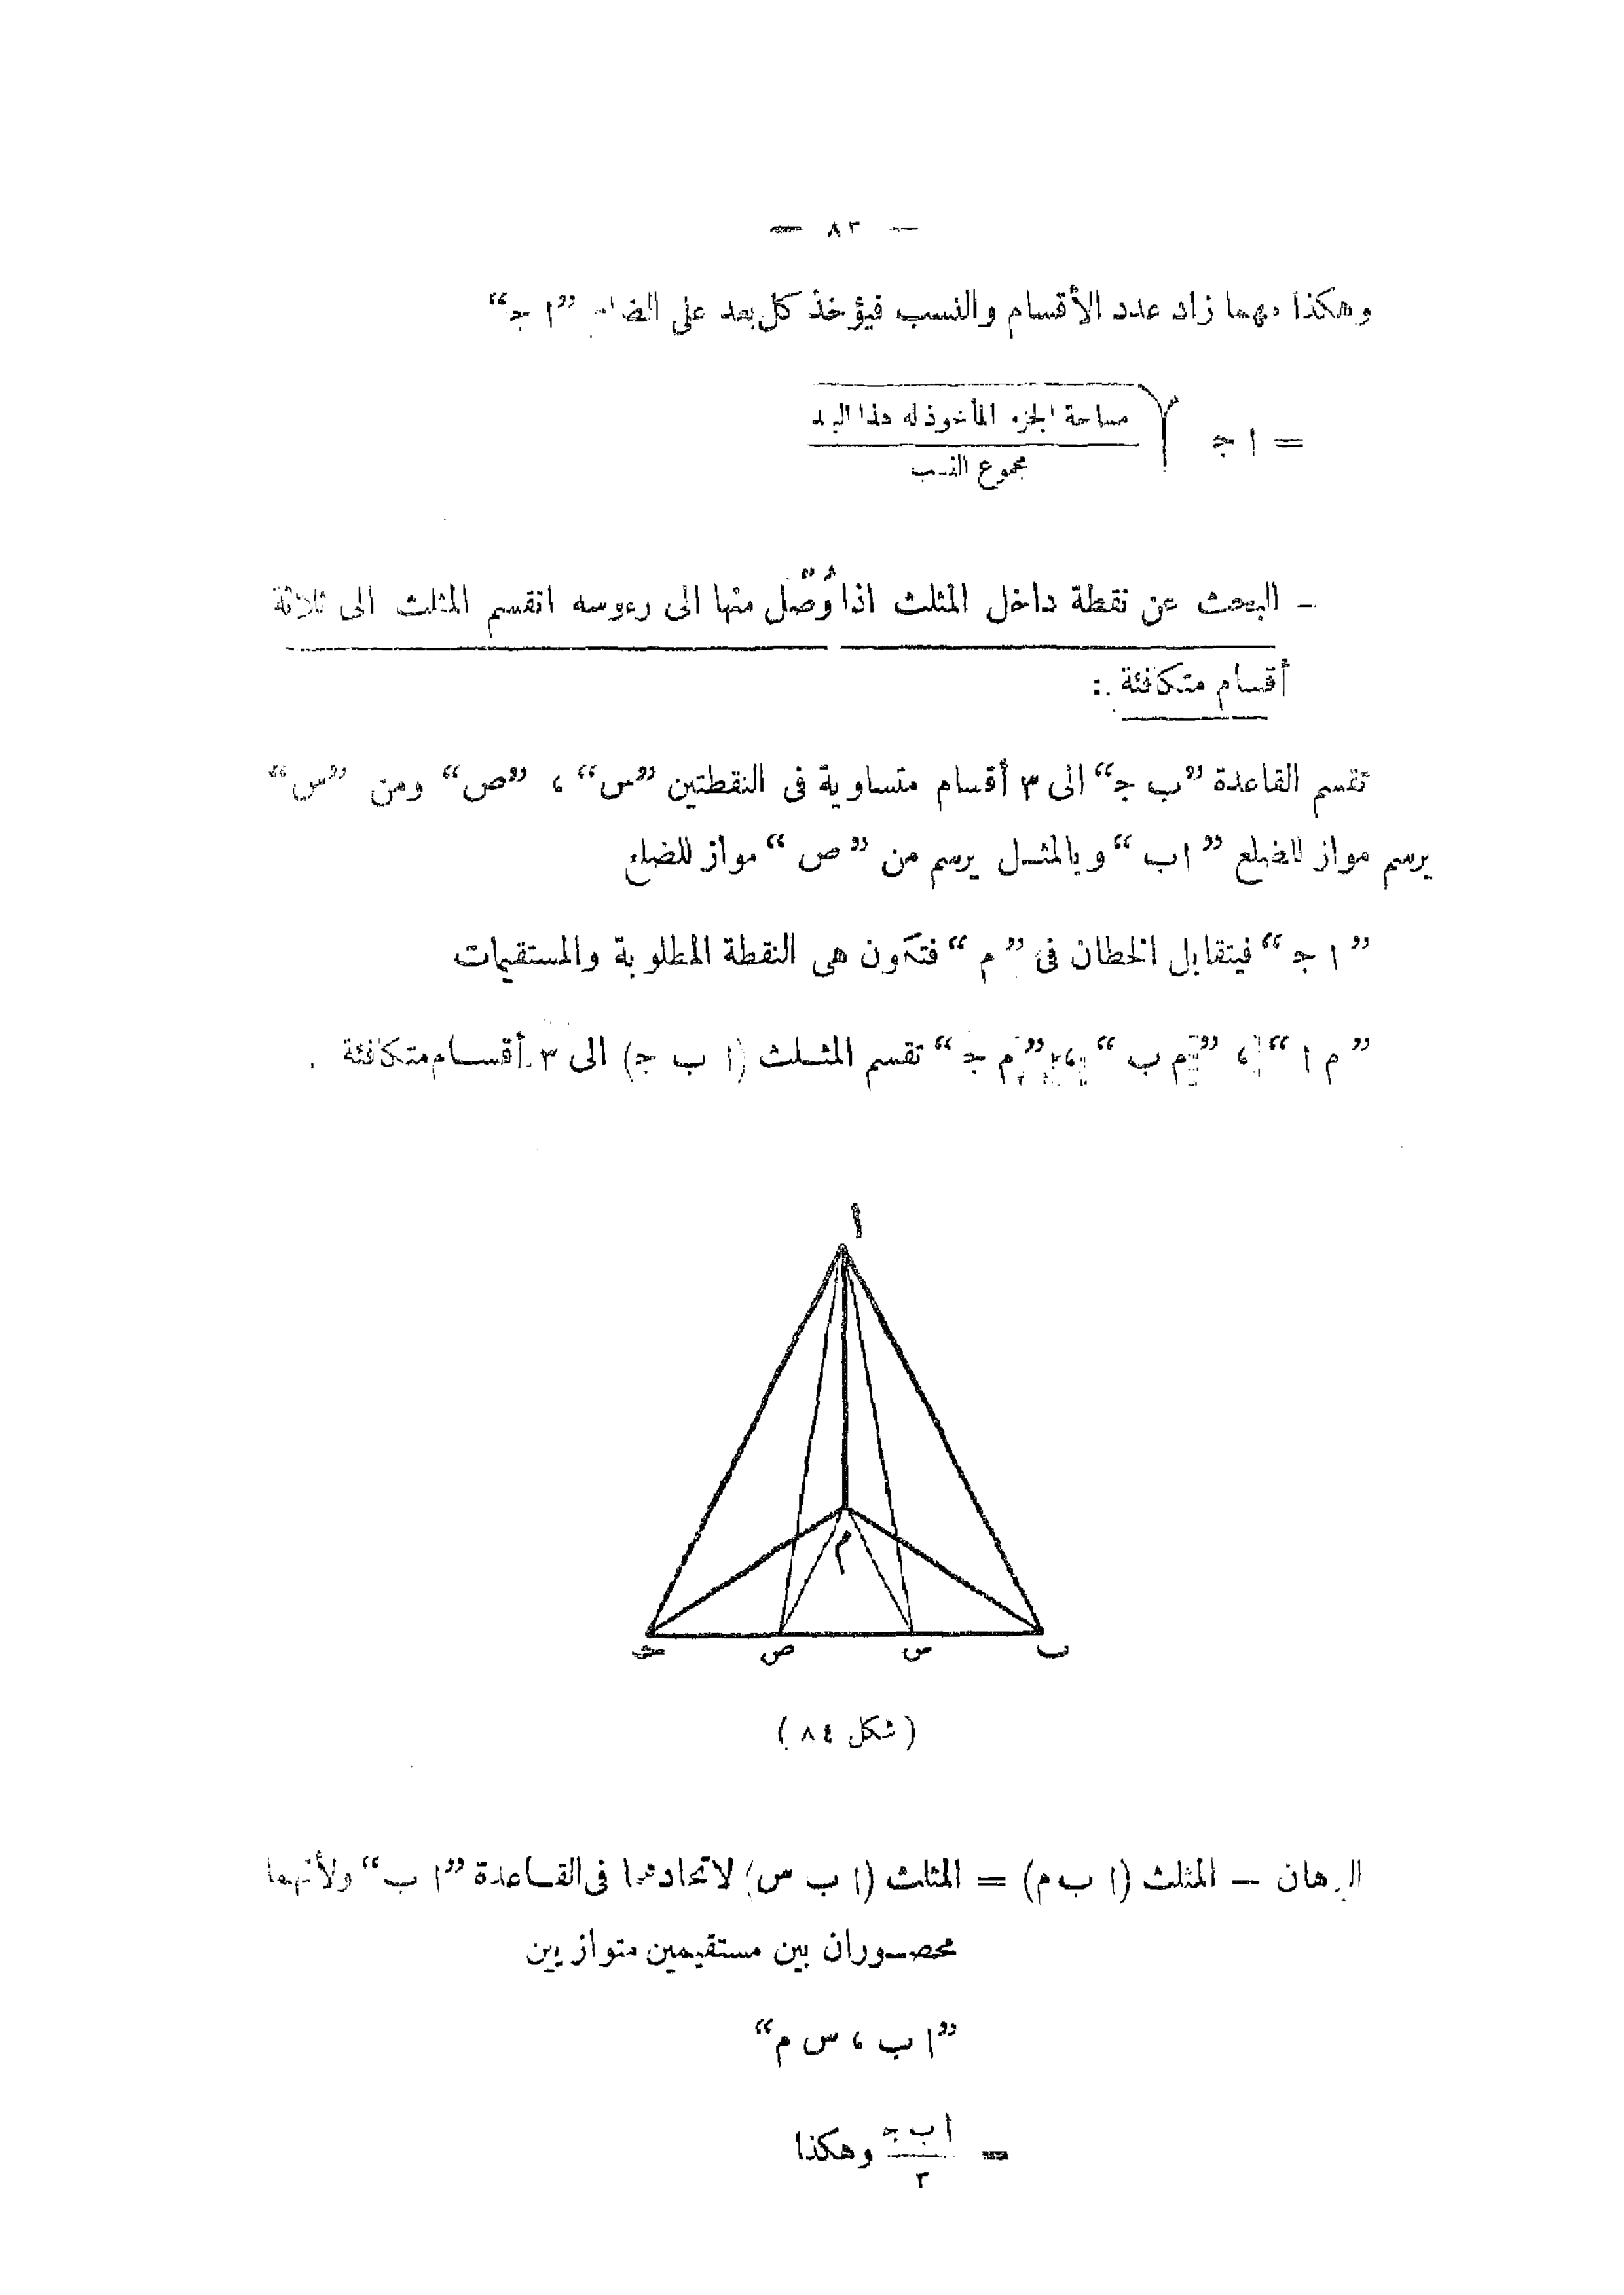 — ٨٣ —
وهكذا مهما زاد عدد الأقسام والنسب فيؤخذ كل بعد على "ا جـ"
مساحة الجزء المأخوذ له هذا البعد
= ا جـ √
مجموع النسب
— البحث عن نقطة داخل المثلث اذا وُصّل منها الى رءوسه انقسم المثلث الى ثلاثة
أقسام متكافئة :
تقسم القاعدة "ب جـ" الى ٣ أقسام متساوية فى النقطتين "س" ، "ص" ومن "س"
يرسم مواز للضلع "ا ب" وبالمثل يرسم من "ص" مواز للضلع
"ا جـ" فيتقابل الخطان فى "م" فتكون هى النقطة المطلوبة والمستقيمات
"م ا" ، "م ب" ، "م جـ" تقسم المثلث (ا ب جـ) الى ٣ أقسام متكافئة .
ا
م
جـ ص س ب
(شكل ٨٤)
البرهان — المثلث (ا ب م) = المثلث (ا ب س) لاتحادهما فى القاعدة "ا ب" ولأنهما
محصوران بين مستقيمين متوازيين
"ا ب ، س م"
ا ب جـ
= وهكذا
٣